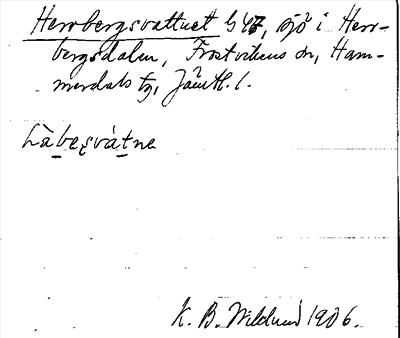 Herrbergsvattnet G 47, sjö i Herr-
bergsdalen, Frostvikens sn, Ham-
merdals tg, Jämtl. l.
Làbesvátne
K. B. Wiklund 1906.